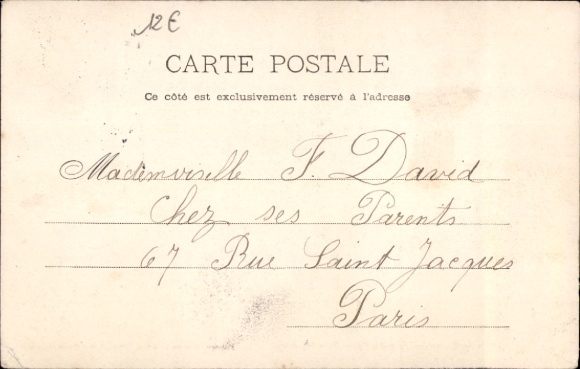 12€
CARTE POSTALE
Ce côté est exclusivement réservé à l'adresse
Mademoiselle F. David
Chez ses Parents
67 Rue Saint Jacques
Paris